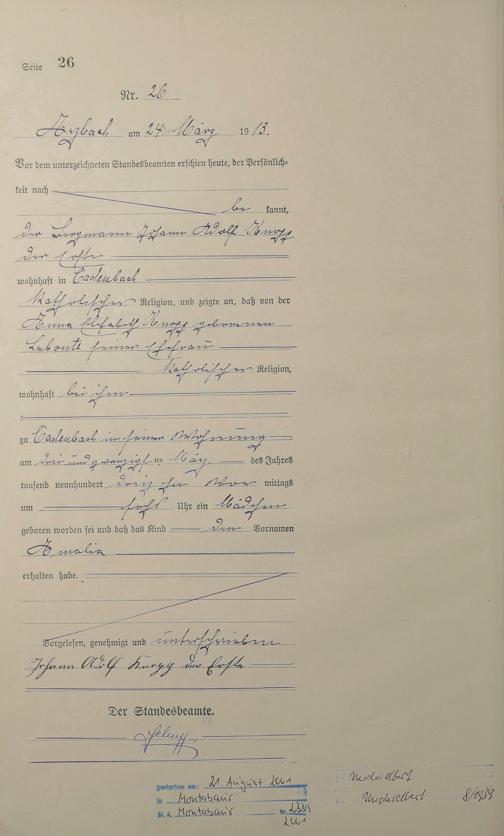 Seite 26
Nr. 26
Arzbach am 24 März 1913.
Vor dem unterzeichneten Standesbeamten erschien heute, der Persönlich-
keit nach
be kannt,
der Bergmann Johann Adolf Knopp
der Erste
wohnhaft in Cadenbach
katholischer Religion, und zeigte an, daß von der
Anna Elisabeth Knopp geborenen
Labonte seiner Ehefrau
katholischer Religion,
wohnhaft bei ihm
zu Cadenbach in seiner Wohnung
am drei und zwanzigsten März des Jahres
tausend neunhundert dreizehn Vor mittags
um sechs Uhr ein Mädchen
geboren worden sei und daß das Kind den Vornamen
Amalia
erhalten habe.
Vorgelesen, genehmigt und unterschrieben
Johann Adolf Knopp der Erste
Der Standesbeamte.
gestorben am: 21. August 2001
in Montabaur
St. A. Montabaur Nr.
2001
Niederelbert
Niederelbert 8/1939